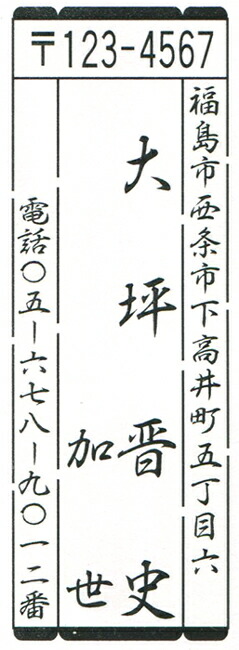 〒123-4567
福島市西条市下高井町五丁目六
大坪晋史
加世
電話〇五ー六七八ー九〇一二番